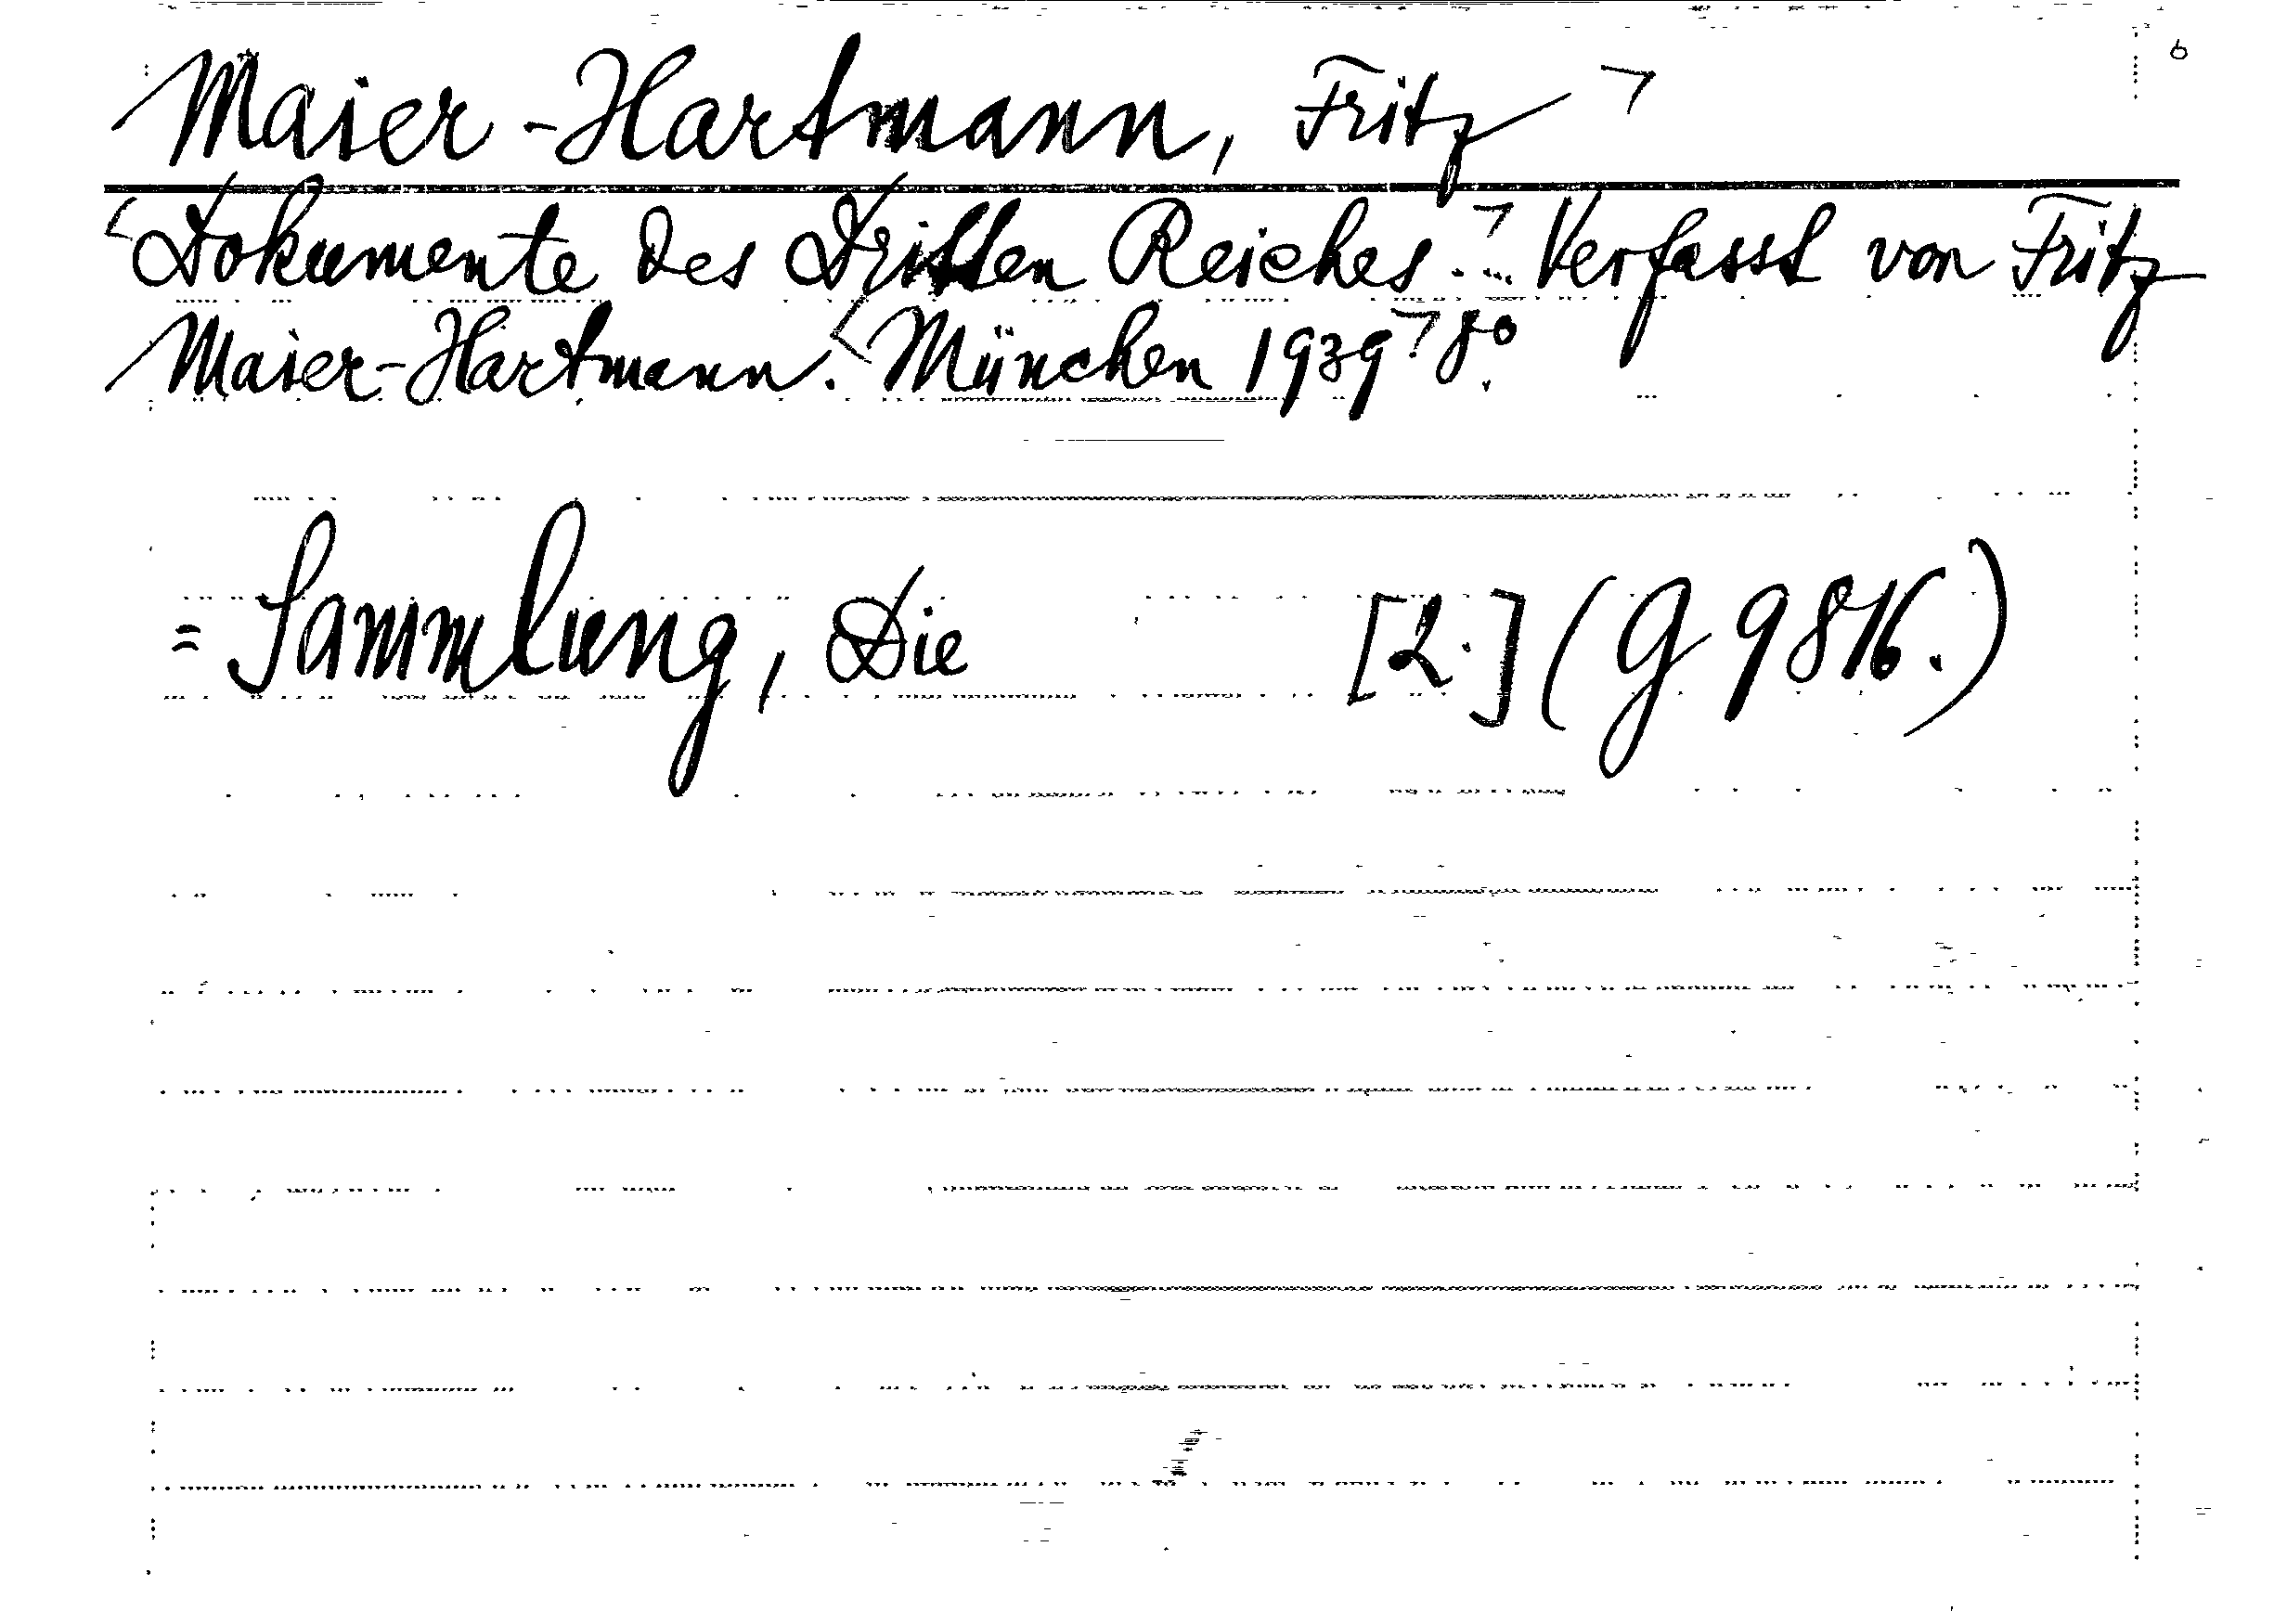 6
Maier-Hartmann, Fritz ¬
Dokumente des Dritten Reiches... Verfasst von Fritz
Maier-Hartmann. München 1939 8°.
= Sammlung, Die [2.] (G 9816.)